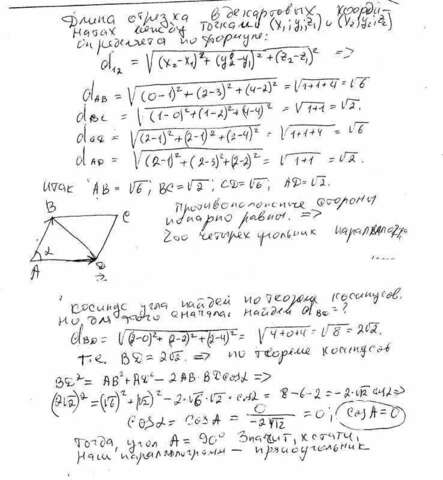 Длина отрезка в декартовых коорди-
натах между точками (x₁; y₁; z₁) и (x₂; y₂; z₂)
определяется по формуле:
d₁₂ = √((x₂-x₁)² + (y₂-y₁)² + (z₂-z₁)²) =>
d_AB = √((0-1)² + (2-3)² + (4-2)²) = √(1+1+4) = √6
d_BC = √((1-0)² + (1-2)² + (4-4)²) = √(1+1) = √2.
d_CD = √((2-1)² + (2-1)² + (2-4)²) = √(1+1+4) = √6
d_AD = √((2-1)² + (2-3)² + (2-2)²) = √(1+1) = √2.
Итак AB = √6; BC = √2; CD = √6; AD = √2.
B C A D α
Противоположные стороны
попарно равны. =>
четырехугольник
Косинус угла найдем по теореме косинусов.
Но для этого сначала найдем =?
d_BD = √((2-0)² + (2-2)² + (2-4)²) = √(4+0+4) = √8 = 2√2.
т.е. BD = 2√2. => по теореме косинусов
BD² = AB² + AD² - 2AB · cosα =>
(2√2)² = (√6)² + (√2)² - 2·√6·√2 · cosα = 8-6-2 = -2·√12 cosα =>
cosα = cosA = 0/(-2√12) = 0; cosA = 0
Тогда угол A = 90° Значит, кстати,
наш параллелограмм - прямоугольник